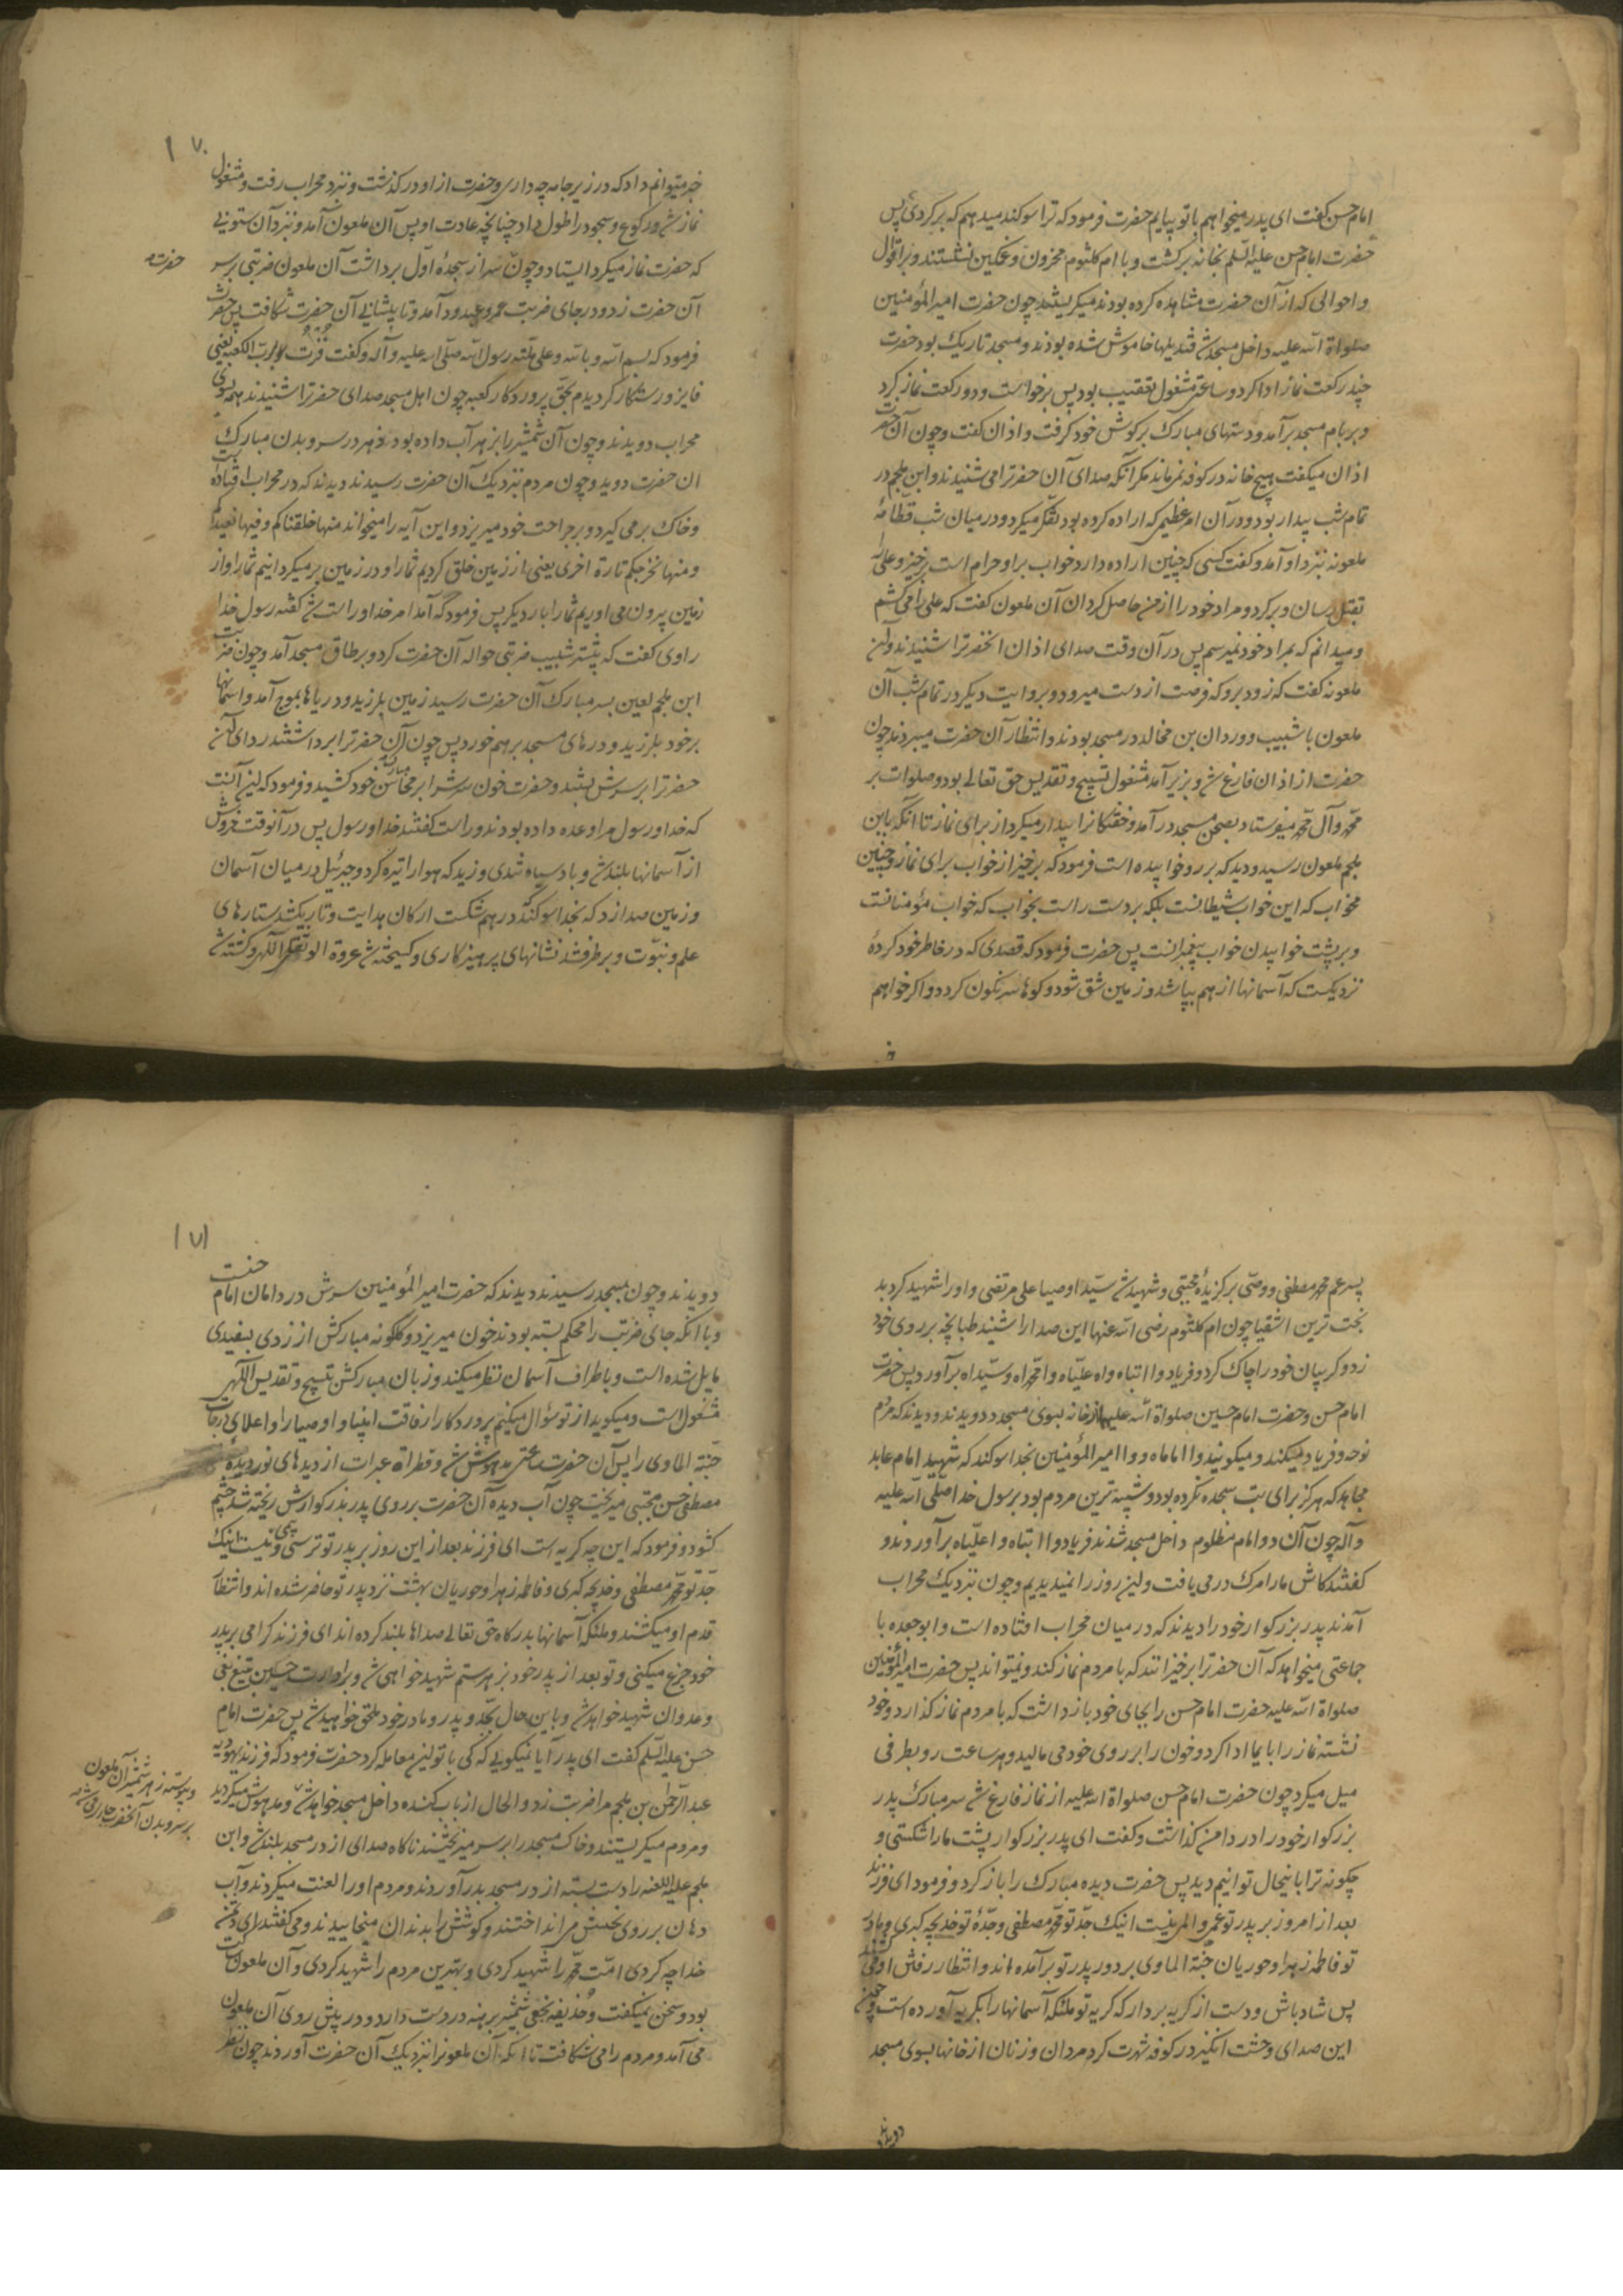 امام حسن گفت ای پدر میخواهم با تو بیایم حضرت فرمود که ترا سوکند میدهم که برکردی پس
حضرت امام حسن علیه السلم بخانه برکشت و با ام کلثوم محزون و غمکین نشستند و بر اقوال
و احوالی که از آن حضرت مشاهده کرده بودند میکریستند چون حضرت امیر المؤمنین
صلواة الله علیه داخل مسجد شد قندیلها خاموش شده بودند و مسجد تاریک بود حضرت
چند رکعت نماز ادا کرد و ساعتی مشغول تعقیب بود پس برخواست و دو رکعت نماز کرد
و بر بام مسجد برآمد و دستهای مبارک بر کوش خود کرفت و اذان کفت و چون آن حضرت
اذان میکفت هیچ خانه در کوفه نمی ماند مکر آنکه صدای آن حضرترا می شنیدند و ابن ملجم در
تمام شب بیدار بود و در آن امر عظیم که اراده کرده بود تفکر میکرد و در میان شب قطامهٔ
ملعونه نزد او آمد و کفت کسی که چنین اراده دارد خواب بر او حرام است برخیز و علی را
بقتل رسان و برکرد و مراد خود را از من حاصل کردان آن ملعون کفت که علی را می کشم
و میدانم که بمراد خود نمیرسم پس در آن وقت صدای اذان انحضرترا شنیدند و آن
ملعونه کفت که زود برو که فرصت از دست میرود و بروایت دیکر در تمام شب آن
ملعون با شبیب و وردان بن مخالد در مسجد بودند و انتظار آن حضرت میبردند چون
حضرت از اذان فارغ شد و بزیر آمد مشغول تسبیح و تقدیس حق تعالی بود و صلوات بر
محمد و آل محمد میفرستاد بصحن مسجد در آمد و خفتکانرا بیدار میکرد از برای نماز تا انکه باین
ملجم ملعون رسید و دید که بر رو خوابیده است فرمود که برخیز از خواب برای نماز و چنین
مخواب که این خواب شیطانست بلکه بر دست راست بخواب که خواب مؤمنانست
و بر پشت خوابیدن خواب پیغمبرانست پس حضرت فرمود که قصدی که در خاطر خود کردهٔ
نزدیکست که آسمانها از هم بپاشد و زمین شق شود و کوها سرنکون کردد و اکر خواهم
۱۷۰
خبر میتوانم داد که در زیر جامه چه داری و حضرت از او در کذشت و نزد محراب رفت و مشغول
نماز شد و رکوع و سجود را طول داد چنانچه عادت او پس آن ملعون آمد و نزد آن ستونی
که حضرت نماز میکرد ایستاد و چون سر از سجدهٔ اول برداشت آن ملعون ضربتی بر سر
حضرت
آن حضرت زد و در جای ضربت عمرو عبدود آمد و تا پیشانی آن حضرت شکافت پس حضرت
فرمود که بسم الله و بالله و علی ملته رسول الله صلی الله علیه و آله و کفت فُزتُ و برب الکعبه یعنی
فایز و رستکار کردیدم بحق پروردکار کعبه چون اهل مسجد صدای حضرترا شنیدند همه بسوی
محراب دویدند و چون آن شمشیر را بزهر آب داده بودند زهر در سر و بدن مبارک
ان حضرت دوید و چون مردم نزدیک آن حضرت رسیدند دیدند که در محراب افتاده
و خاک برمی کیرد و بر جراحت خود میریزد و این آیه را میخواند منها خلقناکم و فیها نعیدکم
و منها نخرجکم تارة اخری یعنی از زمین خلق کردیم شما را و در زمین برمیکردانیم شما را و از
زمین بیرون می اوریم شما را بار دیکر پس فرمود که آمد امر خدا و راست شد کفته رسول خدا
راوی کفت که پیشتر شبیب ضربتی حواله آن حضرت کرد و بر طاق مسجد آمد و چون ضربت
ابن ملجم لعین بسر مبارک آن حضرت رسید زمین بلرزید و دریاها بموج آمد و اسمانها
برخود بلرزید و درهای مسجد برهم خورد پس چون آن حضرترا برداشتند ردای آن
حضرترا بر سرش بستند و حضرت خون سرش را بر محاسن مبارک خود کشید و فرمود که این آنست
که خدا و رسول مرا وعده داده بودند و راست کفتند خدا و رسول پس در آنوقت خروش
از آسمانها بلند شد و باد سیاه تندی وزید که هوا را تیره کرد و جبرئیل در میان آسمان
و زمین صدا زد که بخدا سوکند درهم شکست ارکان هدایت و تاریکشد ستارهای
علم و نبوت و برطرفشد نشانهای پرهیزکاری و کسیخته شد عروة الوثقی الهی و کشته شد
پسر عم محمد مصطفی و وصی برکزیدهٔ مجتبی و شهید شد سید اوصیا علی مرتضی و او را شهید کرد بد
بخت ترین اشقیا چون ام کلثوم رضی الله عنها این صدا را شنید طبانچه بر روی خود
زد و کریبان خود را چاک کرد و فریاد وا ابتاه واه علیاه وا محمداه و سیداه برآورد پس حضرت
امام حسن و حضرت امام حسین صلواة الله علیهما از خانه بسوی مسجد دویدند و دیدند که مردم
نوحه و فریاد میکنند و میکویند وا اماماه و وا امیر المؤمنین بخدا سوکند که شهید امام عابد
مجاهد که هرکز برای بت سجده نکرده بود و شبیه ترین مردم بود برسول خدا صلی الله علیه
و آله چون آن دو امام مظلوم داخل مسجد شدند فریاد وا ابتاه وا علیاه برآوردند و
کفتند کاش ما را مرک در می یافت و این روز را نمیدیدیم و چون نزدیک محراب
آمدند پدر بزرکوار خود را دیدند که در میان محراب افتاده است و ابوجعده با
جماعتی میخواهد که آن حضرترا برخیزانند که با مردم نماز کند و نمیتواند پس حضرت امیر المؤمنین
صلواة الله علیه حضرت امام حسن را بجای خود بازداشت که با مردم نماز کذارد و خود
نشسته نماز را بایما ادا کرد و خون را بر روی خود می مالید و هر ساعت رو بطرفی
میل میکرد چون حضرت امام حسن صلواة الله علیه از نماز فارغ شد سر مبارک پدر
بزرکوار خود را در دامن کذاشت و کفت ای پدر بزرکوار پشت ما را شکستی و
چکونه ترا باینحال توانیم دید پس حضرت دیده مبارک را باز کرد و فرمود ای فرزند
بعد از امروز بر پدر تو غم و المی نیست اینک جد تو محمد مصطفی و جدهٔ تو خدیجه کبری و مادر
تو فاطمه زهرا و حوریان جنة الماوی بر دور پدر تو برآمده اند و انتظار رفتن او می کشند
پس شاد باش و دست از کریه بردار که کریه تو ملئکه آسمانها را بکریه آورده است و چون
این صدای وحشت انکیز در کوفه شهرت کرد مردان و زنان از خانها بسوی مسجد
دویدند
۱۷۱
دویدند و چون بمسجد رسیدند دیدند که حضرت امیر المؤمنین سرش در دامان امام حسنست
و با انکه جای ضربت را محکم بسته بودند خون میریزد و کلکونه مبارکش از زردی بسفیدی
مایل شده است و باطراف آسمان نظر میکند و زبان مبارکش بتسبیح و تقدیس الهی
مشغول است و میکوید از تو سؤال میکنم پروردکارا رفاقت انبیا و اوصیا را و اعلای درجات
جنة الماوی را پس آن حضرت ساعتی مدهوش شد و قطراة عبرات از دیدهای نور دیدهٔ
مصطفی حسن مجتبی میریخت چون آب دیده آن حضرت بر روی پدر بزرکوارش ریخته شد چشم
کشود و فرمود که این چه کریه است ای فرزند بعد از این روز بر پدر تو ترسی و بیمی نیست اینک
جد تو محمد مصطفی و خدیجه کبری و فاطمه زهرا و حوریان بهشت نزد پدر تو حاضر شده اند و انتظار
قدم او میکشند و ملئکه آسمانها بدرکاه حق تعالی صداها بلند کرده اند ای فرزند کرامی بر پدر
خود جزع میکنی و تو بعد از پدر خود بزهر ستم شهید خواهی شد و برادرت حسین بتیغ بغی
و عدوان شهید خواهد شد و باین حال بجد و پدر و مادر خود ملحق خواهید شد پس حضرت امام
حسن علیه السلم کفت ای پدر آیا نمیکویی که کی با تو این معامله کرد حضرت فرمود که فرزند یهودیه
عبد الرحمن بن ملجم مرا ضربت زد و الحال از باب کنده داخل مسجد خواهد شد و مدهوش میکردید
و پیوسته زهر شمشیر آن ملعون
بر سر و بدن آنحضرت جاری می شد
و مردم میکریستند و خاک مسجد را بر سر میریختند ناکاه صدای از در مسجد بلند شد و ابن
ملجم علیه اللعنه را دست بسته از در مسجد بدر آوردند و مردم او را لعنت میکردند و آب
دهان بر روی نحسش می انداختند و کوشش را بدندان میخاییدند و می کفتند ای دشمن
خدا چه کردی امت محمد را شهید کردی و بهترین مردم را شهید کردی و آن ملعون ساکت
بود و سخن نمیکفت و حذیفه نخعی شمشیر برهنه در دست دارد و در پیش روی آن ملعون
می آمد و مردم را می شکافت تا انکه آن ملعونرا نزدیک آن حضرت آوردند چون نظر